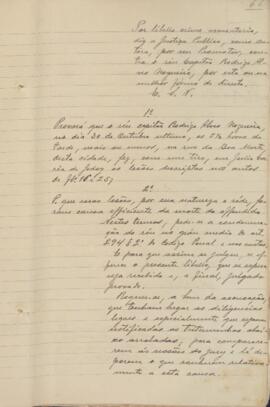 Por libello crime accusatorio,
diz a Justiça Publica, como au-
tora, por seu Promotor, con-
tra o réu Capitão Rodrigo Al-
ves Nogueira, por esta ou na
melhor forma de direito.
E. S. N.
1º
Provará que o réu capitão Rodrigo Alves Nogueira
no dia 30 de Outubro ultimo, as 5½ horas da
tarde, mais ou menos, na rua da Boa Morte,
desta cidade, fez, com um tiro, em
de Godoy as lesões descriptas nos autos
de fls
2º
P. que essas lesões, por sua natureza e séde,
foram causa efficiente da morte do offendido.
Nestes termos, pede-se a condemna-
ção do réu no gráu medio do art.
294 § 2º do Codigo Penal e nas custas.
E para que assim se julgue, se of-
ferece o presente libello, que se espera
seja recebido e, a final, julgado
provado.
Requer-se, a bem da accusação,
que tenham lugar as diligencias
legaes e especialmente que sejam
notificadas as testemunhas abai-
xo arroladas, para comparece-
rem ás sessões do jury e lá de-
porem o que souberem relativa-
mente a esta causa.